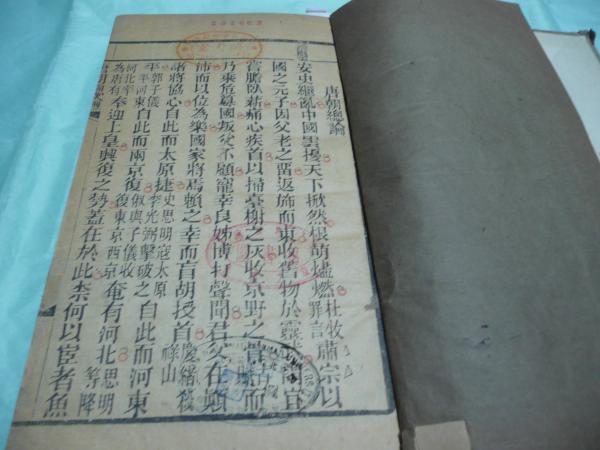 唐朝總論
安史繼亂中國雲擾天下掀然根萌燼燃杜牧罪言肅宗以
國之元子因父老之畱返斾而東收舊物於靈 宜
嘗膽臥薪痛心疾首以掃臺榭之灰收京野之 而
乃乘危簒國叛父不顧寵幸良姊博打聲聞君父在顛
沛而以位為樂國家將焉賴之幸而盲胡授首慶緒殺祿山
諸將協心自此而太原捷史思明寇太原李光弼擊破之自此而河東
平郭子儀平河東自此而兩京復俶與子儀收復東京西京奄有河北思明等降
河北幸為唐有奉迎上皇興復之勢蓋在於此柰何以宦者魚
202662